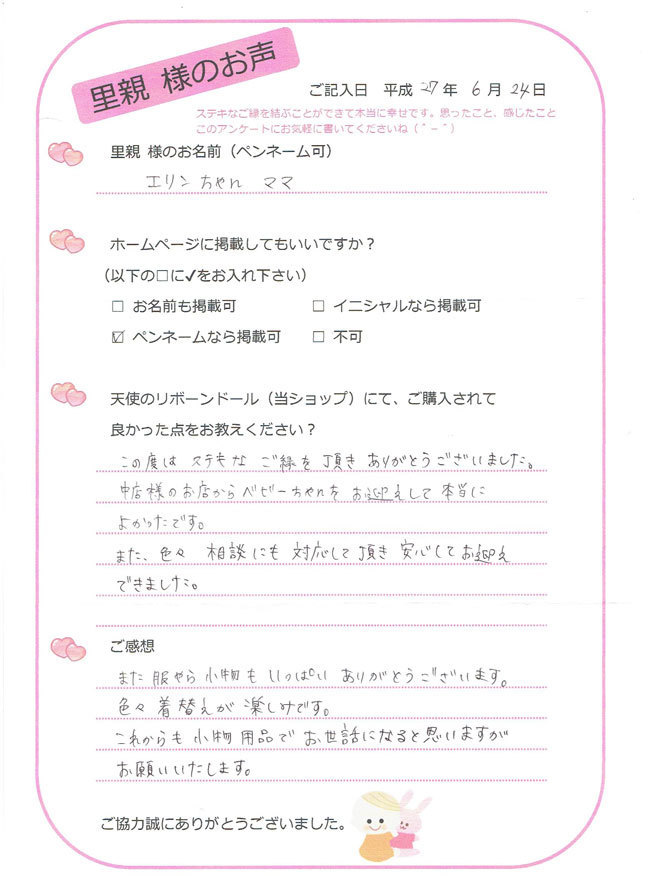 里親 様のお声
ご記入日 平成 27 年 6 月 24 日
ステキなご縁を結ぶことができて本当に幸せです。思ったこと、感じたこと
このアンケートにお気軽に書いてくださいね(＾－＾)
里親 様のお名前（ペンネーム可）
エリンちゃん ママ
ホームページに掲載してもいいですか？
（以下の□に✓をお入れ下さい）
□ お名前も掲載可 □ イニシャルなら掲載可
☑ ペンネームなら掲載可 □ 不可
天使のリボーンドール（当ショップ）にて、ご購入されて
良かった点をお教えください？
この度は ステキな ご縁を 頂き ありがとうございました。
中店様のお店から ベビーちゃんを お迎えして 本当に
よかったです。
また、色々 相談にも 対応して 頂き 安心して お迎え
できました。
ご感想
また 服やら 小物も いっぱい ありがとうございます。
色々 着替えが 楽しみです。
これからも 小物 用品で お世話になると思いますが
お願いいたします。
ご協力誠にありがとうございました。